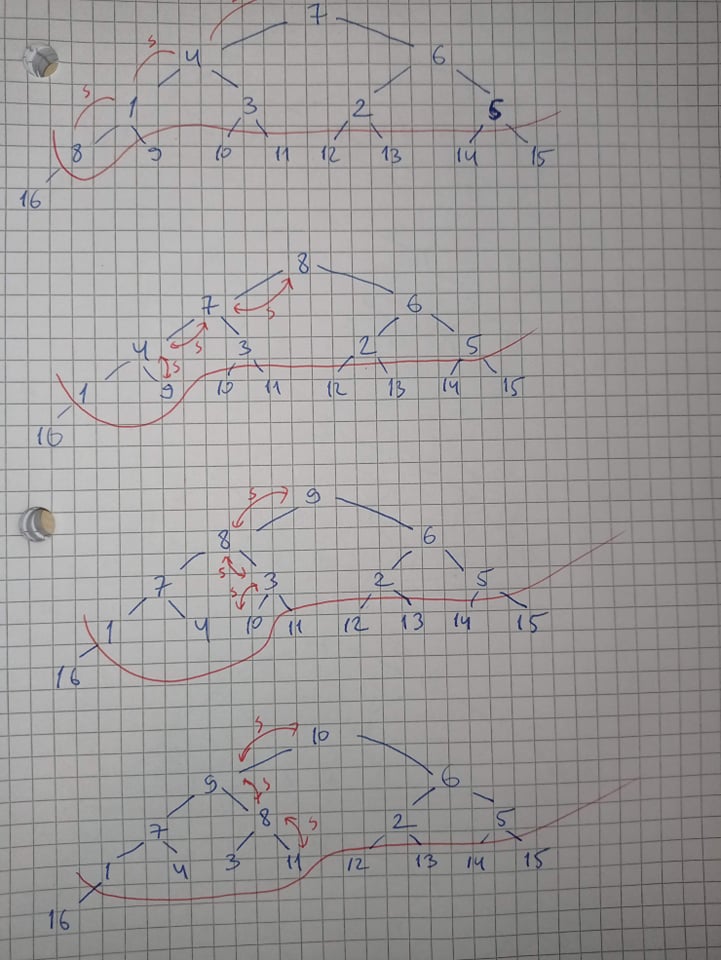 7
s 4 6
s 1 3 2 5
8 9 10 11 12 13 14 15
16
8
7 s 6
4 s s 3 2 5
1 9 10 11 12 13 14 15
16
s 9
8 6
7 s s 3 2 5
1 4 10 11 12 13 14 15
16
s 10
9 s 6
7 8 s 2 5
1 4 3 11 12 13 14 15
16